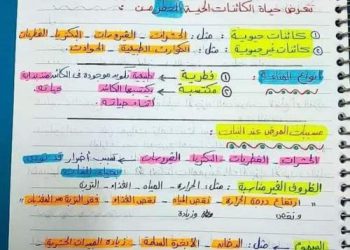 تتعرض حياة الكائنات الحية للخطر من :
① كائنات حيوية : مثل : الحشرات - الفيروسات - البكتريا - الفطريات
② كائنات غير حيوية : مثل : الكوارث الطبيعية - الحوادث
أنواع المناعة
① فطرية ← طبيعية تكون موجودة في الكائن منذ بداية حياته
② مكتسبة ← يكتسبها الكائن أثناء حياته
مسببات المرض عند النبات
الحشرات - الفطريات - البكتريا - الفيروسات ← تسبب أضرار
الظروف الغير مناسبة : مثل : الحرارة - المياه - الغذاء - التربة
ارتفاع درجة الحرارة - نقص المياه - نقص الغذاء
ونقص وزيادة
السموم : مثل : الدخان - الأبخرة السامة - زيادة المبيدات الحشرية